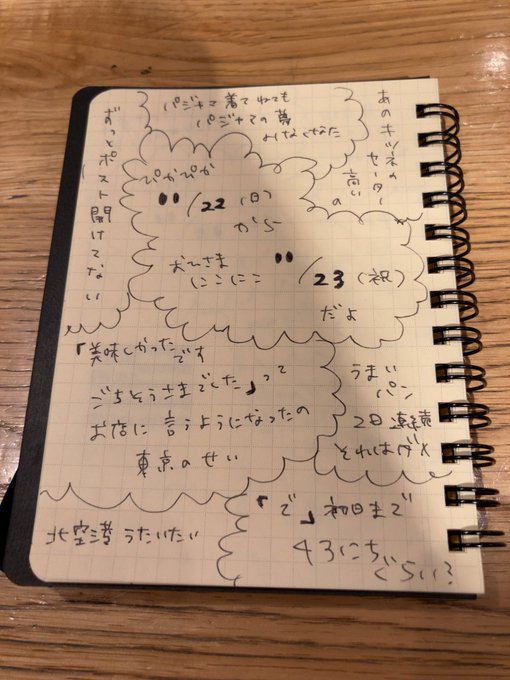 パジャマ着てねても
パジャマの夢
みなくなた
あのキツネの
セーター
高いの
ずっとポスト開けてない
ぴかぴか
"/22(日)
から
おひさま
にこにこ
"/23(祝)
だよ
「美味しかったです
ごちそうさまでした」って
お店に言うようになったの
東京のせい
うまい
パン
2日連続
それはダメ
北空港うたいたい
「で」初日まで
43にち
ぐらい?